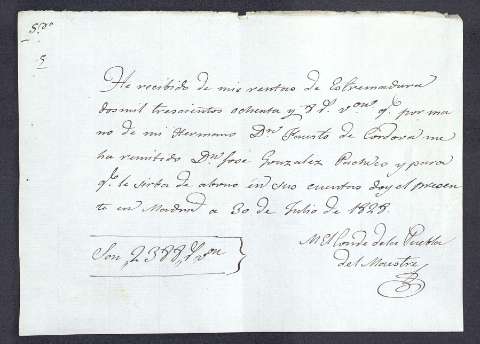 S.do
5
He recibido de mis rentas de Estremadura
dos mil trescientos ochenta y 8 r.s v.on q.e por ma
no de mi Hermano D.n Fausto de Cordova me
ha remitido D.n Jose Gonzalez Pacheco y para
q.e le sirba de abono en sus cuentas doy el presen
te en Madrid a 30 de Julio de 1828
El Conde de la Puebla
del Maestre
Son 2388 r.s von